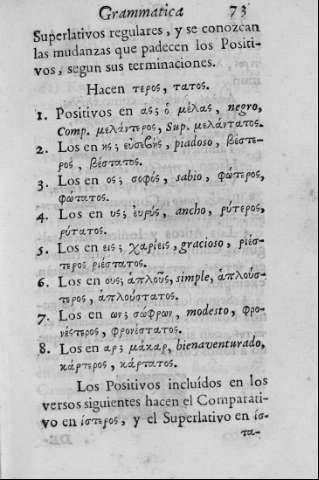 Grammatica 73
Superlativos regulares, y se conozcan
las mudanzas que padecen los Positi-
vos, segun sus terminaciones.
Hacen τερος, τατος.
1. Positivos en ας; ὁ μέλας, negro,
Comp. μελάντερος, Sup. μελάντατος.
2. Los en ης; εὐσεβὴς, piadoso, βέστε-
ρος, βέστατος.
3. Los en ος; σοφὸς, sabio, φώτερος,
φώτατος.
4. Los en υς; εὐρύς, ancho, ρύτερος,
ρύτατος.
5. Los en εις; χαρίεις, gracioso, ριέσ-
τερος ριέστατος.
6. Los en ους; ἁπλοῦς, simple, ἁπλούσ-
τερος, ἁπλούστατος.
7. Los en ων; σώφρων, modesto, φρο-
νέστερος, φρονέστατος.
8. Los en αρ; μάκαρ, bienaventurado,
κάρτερος, κάρτατος.
Los Positivos incluídos en los
versos siguientes hacen el Comparati-
vo en ίστερος, y el Superlativo en ίσ-
τα-